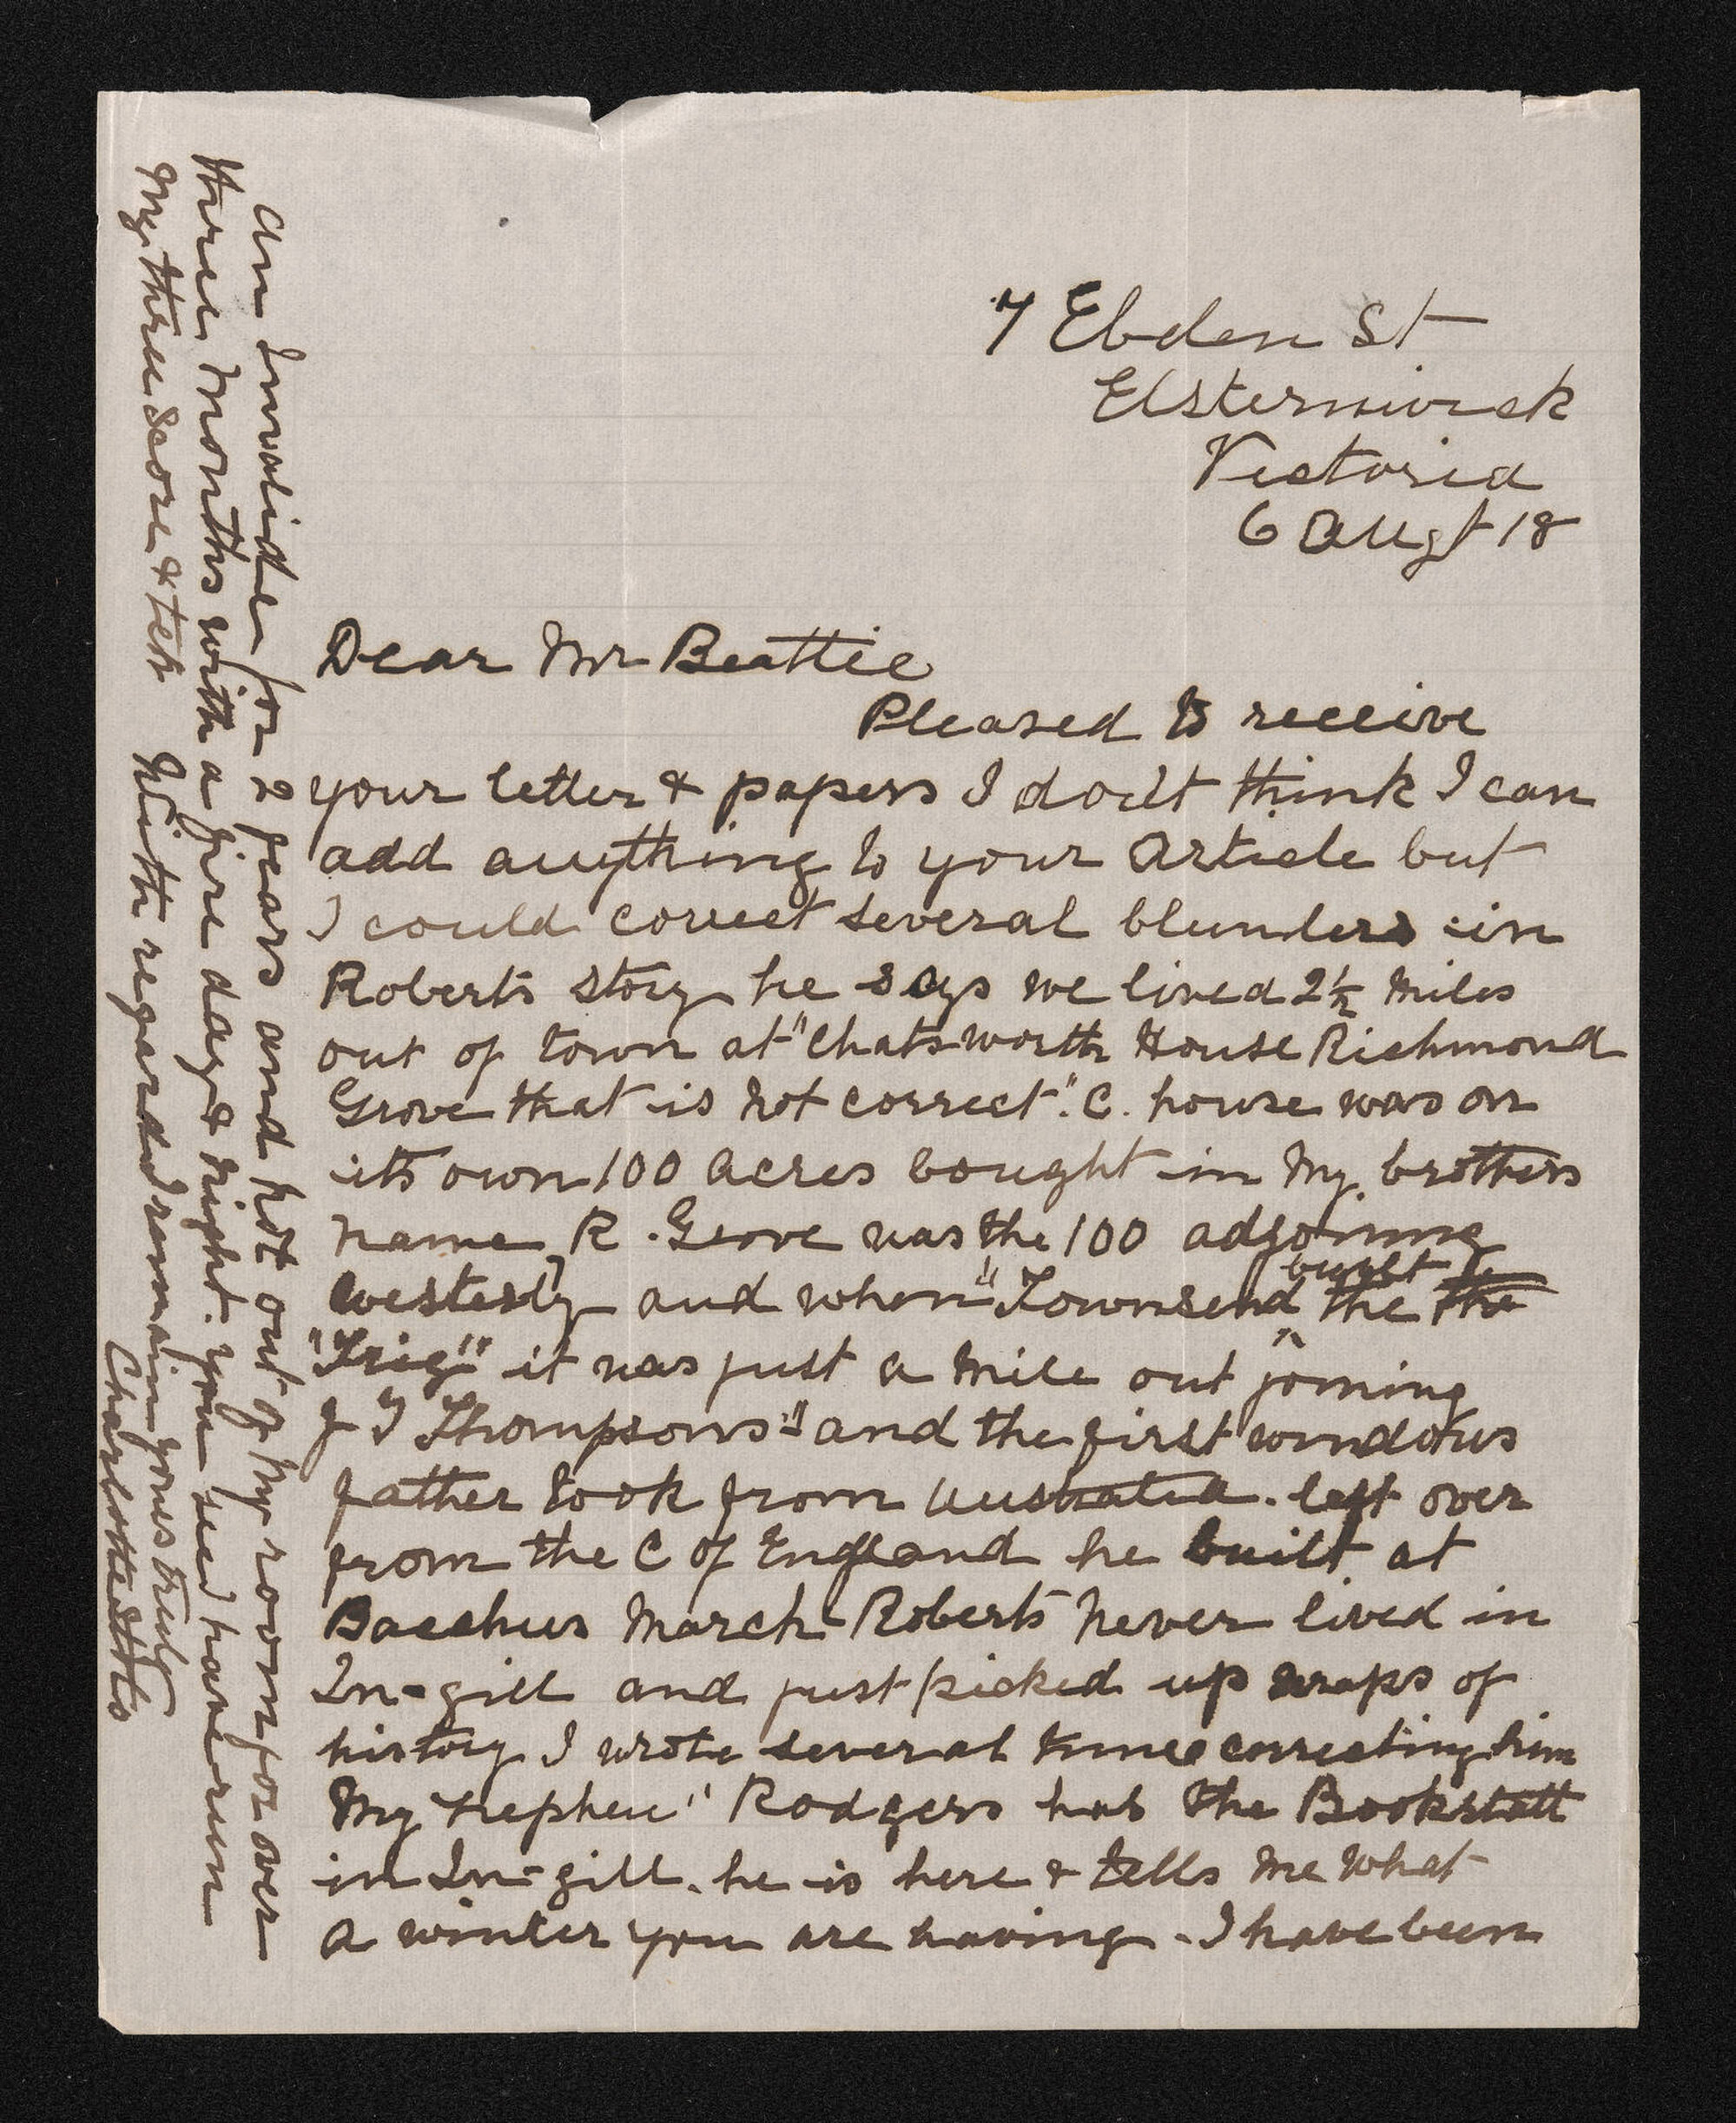 7 Ebden St
Elsternwick
Victoria
6 Augt 18
Dear Mr Beattie
Pleased to receive
your letter & papers I don't think I can
add anything to your Article but
I could correct several blunders in
Roberts story he says we lived 2½ miles
out of town at "Chatsworth House Richmond
Grove that is not correct". C. house was on
its own 100 acres bought in my brothers
name, R. Grove was the 100 adjoining
westerly and when "Townsend bught the the
"Trig" it was just a mile out joining
J T Thompsons" and the first windows
father took from Australia. left over
from the C of England he built at
Bacchus March Roberts never lived in
In-gill and just picked up scraps of
history I wrote several times correcting him
My nephew "Rodgers has the Bookstall
in In-gill. he is here & tells me what
a winter you are having. I have been
an Invalid for 2 years and not out of my room for over
three months with a fire day & night. you see I have run
my three score & ten With regards I remain yours truly
Charlotte